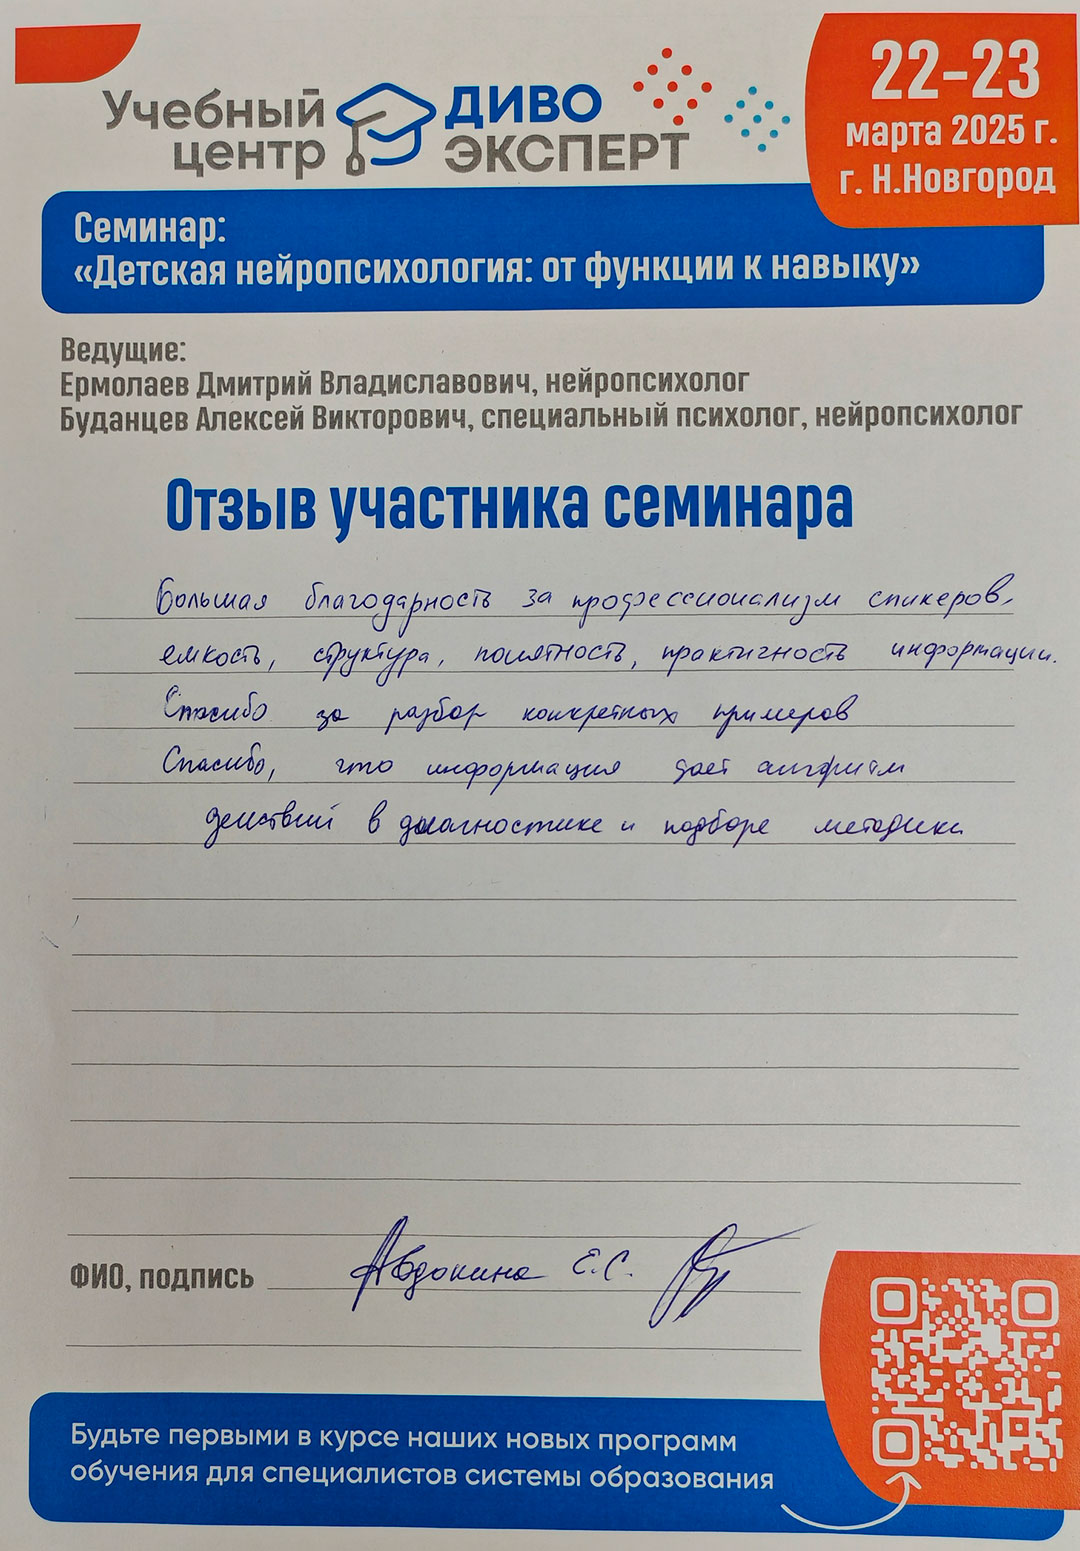 Учебный центр
ДИВО ЭКСПЕРТ
22-23
марта 2025 г.
г. Н.Новгород
Семинар:
«Детская нейропсихология: от функции к навыку»
Ведущие:
Ермолаев Дмитрий Владиславович, нейропсихолог
Буданцев Алексей Викторович, специальный психолог, нейропсихолог
Отзыв участника семинара
Большая благодарность за профессионализм спикеров,
емкость, структура, понятность, практичность информации.
Спасибо за разбор конкретных примеров
Спасибо, что информация дает алгоритм
действий в диагностике и подборе методики
ФИО, подпись Авдокина Е.С.
Будьте первыми в курсе наших новых программ
обучения для специалистов системы образования